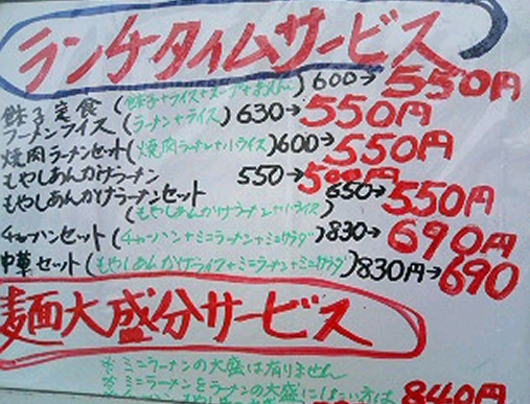 ランチタイムサービス
餃子定食(餃子+ライス+スープ+ザーサイ) 600→550円
ラーメンライス(ラーメン+ライス) 630→550円
焼肉ラーメンセット(焼肉ラーメン+小ライス) 600→550円
もやしあんかけラーメン 550→500円
もやしあんかけラーメンセット 650→550円
(もやしあんかけラーメン+小ライス)
チャーハンセット(チャーハン+ミニラーメン+ミニサラダ) 830→690円
中華セット(もやしあんかけライス+ミニラーメン+ミニサラダ) 830円→690
麺大盛分サービス
※ミニラーメンの大盛は有りません
※ミニラーメンをラーメンの大盛にしたい方は 840円